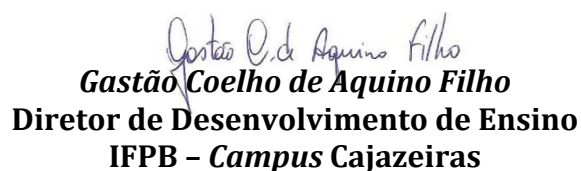 Gastão C. de Aquino Filho
Gastão Coelho de Aquino Filho
Diretor de Desenvolvimento de Ensino
IFPB – Campus Cajazeiras